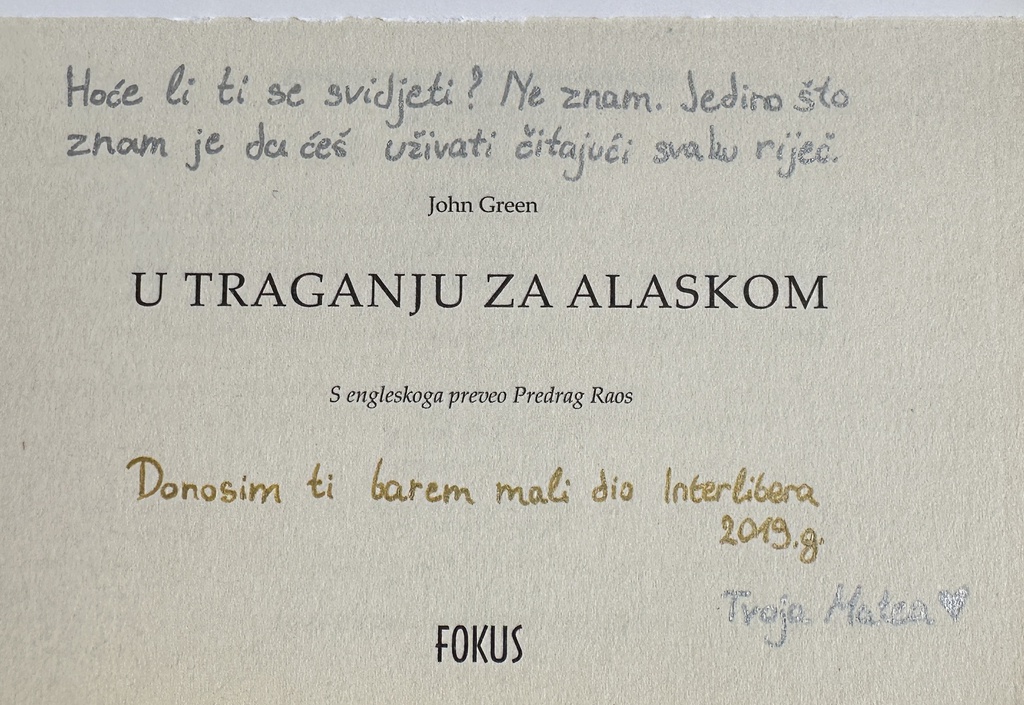 Hoće li ti se svidjeti? Ne znam. Jedino što
znam je da ćeš uživati čitajući svaku riječ.
John Green
U TRAGANJU ZA ALASKOM
S engleskoga preveo Predrag Raos
Donosim ti barem mali dio Interlibera
2019.g.
Tvoja Matea ♥
FOKUS